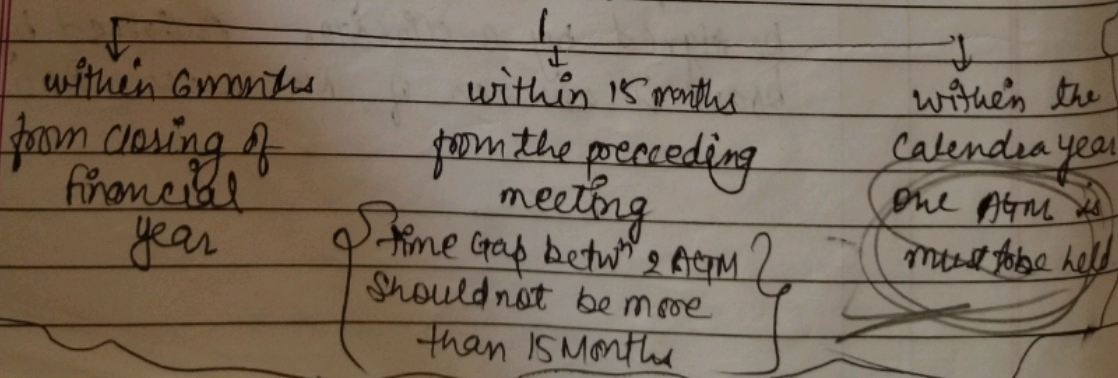 within 6 months
from closing of
financial
year
within 15 months
from the preceeding
meeting
Time Gap betwn 2 AGM
should not be more
than 15 Months
within the
Calendra year
one AGM is
must to be held